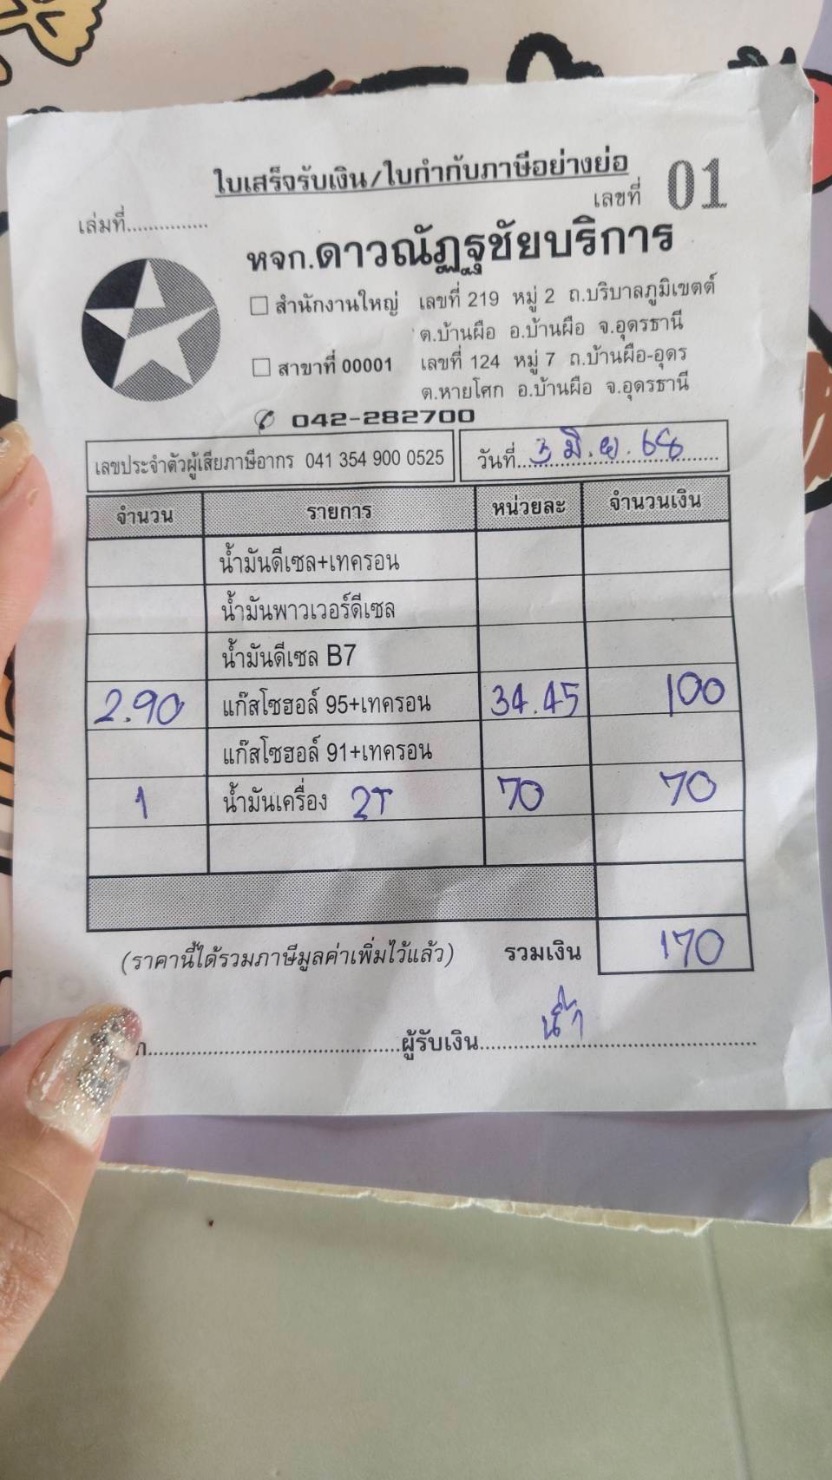 ใบเสร็จรับเงิน/ใบกำกับภาษีอย่างย่อ
เล่มที่............... เลขที่ 01
หจก.ดาวณัฏฐชัยบริการ
☐ สำนักงานใหญ่ เลขที่ 219 หมู่ 2 ถ.บริบาลภูมิเขตต์
ต.บ้านผือ อ.บ้านผือ จ.อุดรธานี
☐ สาขาที่ 00001 เลขที่ 124 หมู่ 7 ถ.บ้านผือ-อุดร
ต.หายโศก อ.บ้านผือ จ.อุดรธานี
✆ 042-282700
เลขประจำตัวผู้เสียภาษีอากร 041 354 900 0525 วันที่ 3 มิ.ย. 68
จำนวน รายการ หน่วยละ จำนวนเงิน
น้ำมันดีเซล+เทครอน
น้ำมันพาวเวอร์ดีเซล
น้ำมันดีเซล B7
2.90 แก๊สโซฮอล์ 95+เทครอน 34.45 100
แก๊สโซฮอล์ 91+เทครอน
1 น้ำมันเครื่อง 2T 70 70
(ราคานี้ได้รวมภาษีมูลค่าเพิ่มไว้แล้ว) รวมเงิน 170
ผู้รับเงิน